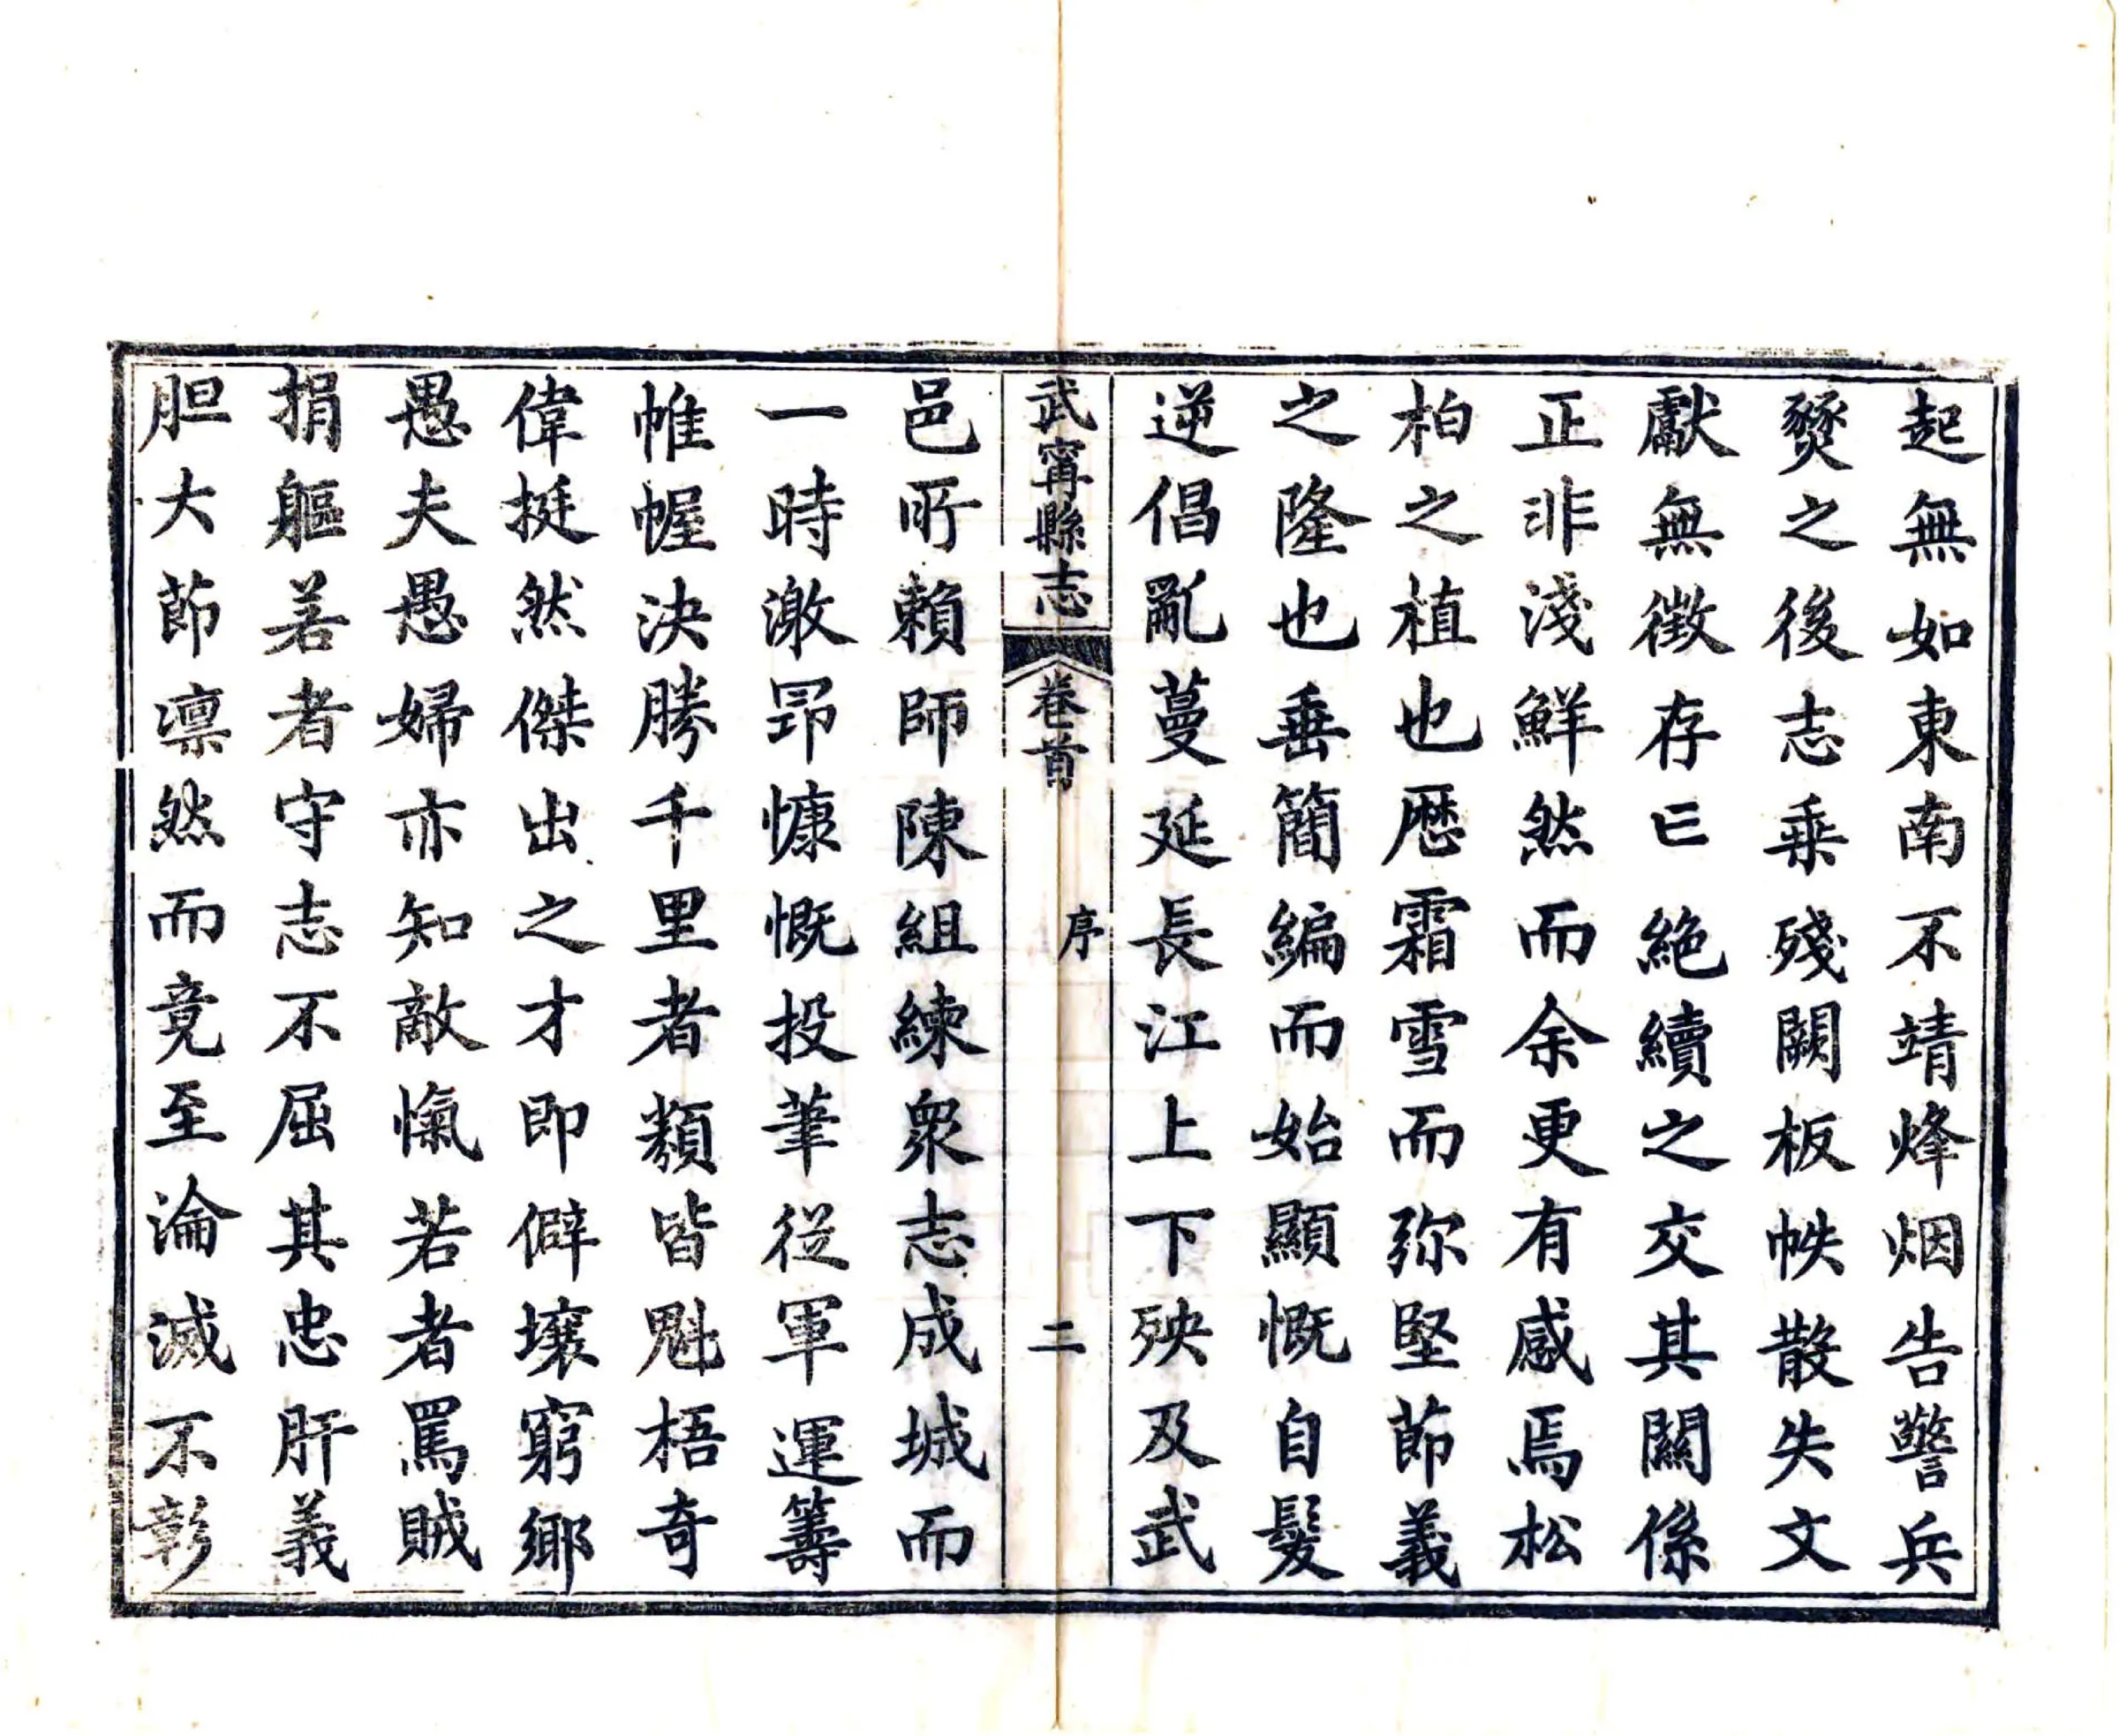 起無如東南不靖烽烟告警兵
燹之後志乗殘闕板帙散失文
獻無徴存亡絶續之交其關係
正非淺鮮然而余更有感焉松
柏之植也歴霜雪而弥堅節義
之隆也垂簡編而始顯慨自髮
逆倡亂蔓延長江上下殃及武
武寗縣志 卷首 序 二
邑所賴師陳組練衆志成城而
一時激昂慷慨投筆從軍運籌
帷幄決勝千里者類皆魁梧奇
偉挺然傑出之才即僻壤窮鄉
愚夫愚婦亦知敵愾若者罵賊
捐軀若者守志不屈其忠肝義
胆大節凛然而竟至淪滅不彰